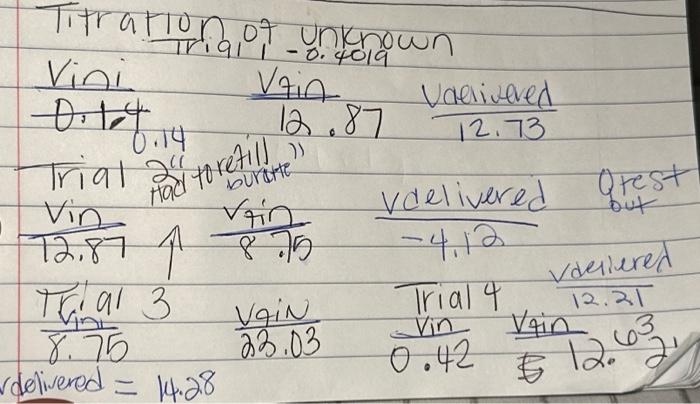 Titration of unknown
Trial 1 - 0.4019
Vini Vfin Vdelivered
0.14 12.87 12.73
0.14
Trial 2 "Had to refill burette"
Vin Vfin Vdelivered Qtest out
12.87 ↑ 8.75 -4.12
Trial 3 Vfin Trial 4 Vdelivered
Vini 23.03 Vin Vfin 12.21
8.75 0.42 12.63
Vdelivered = 14.28